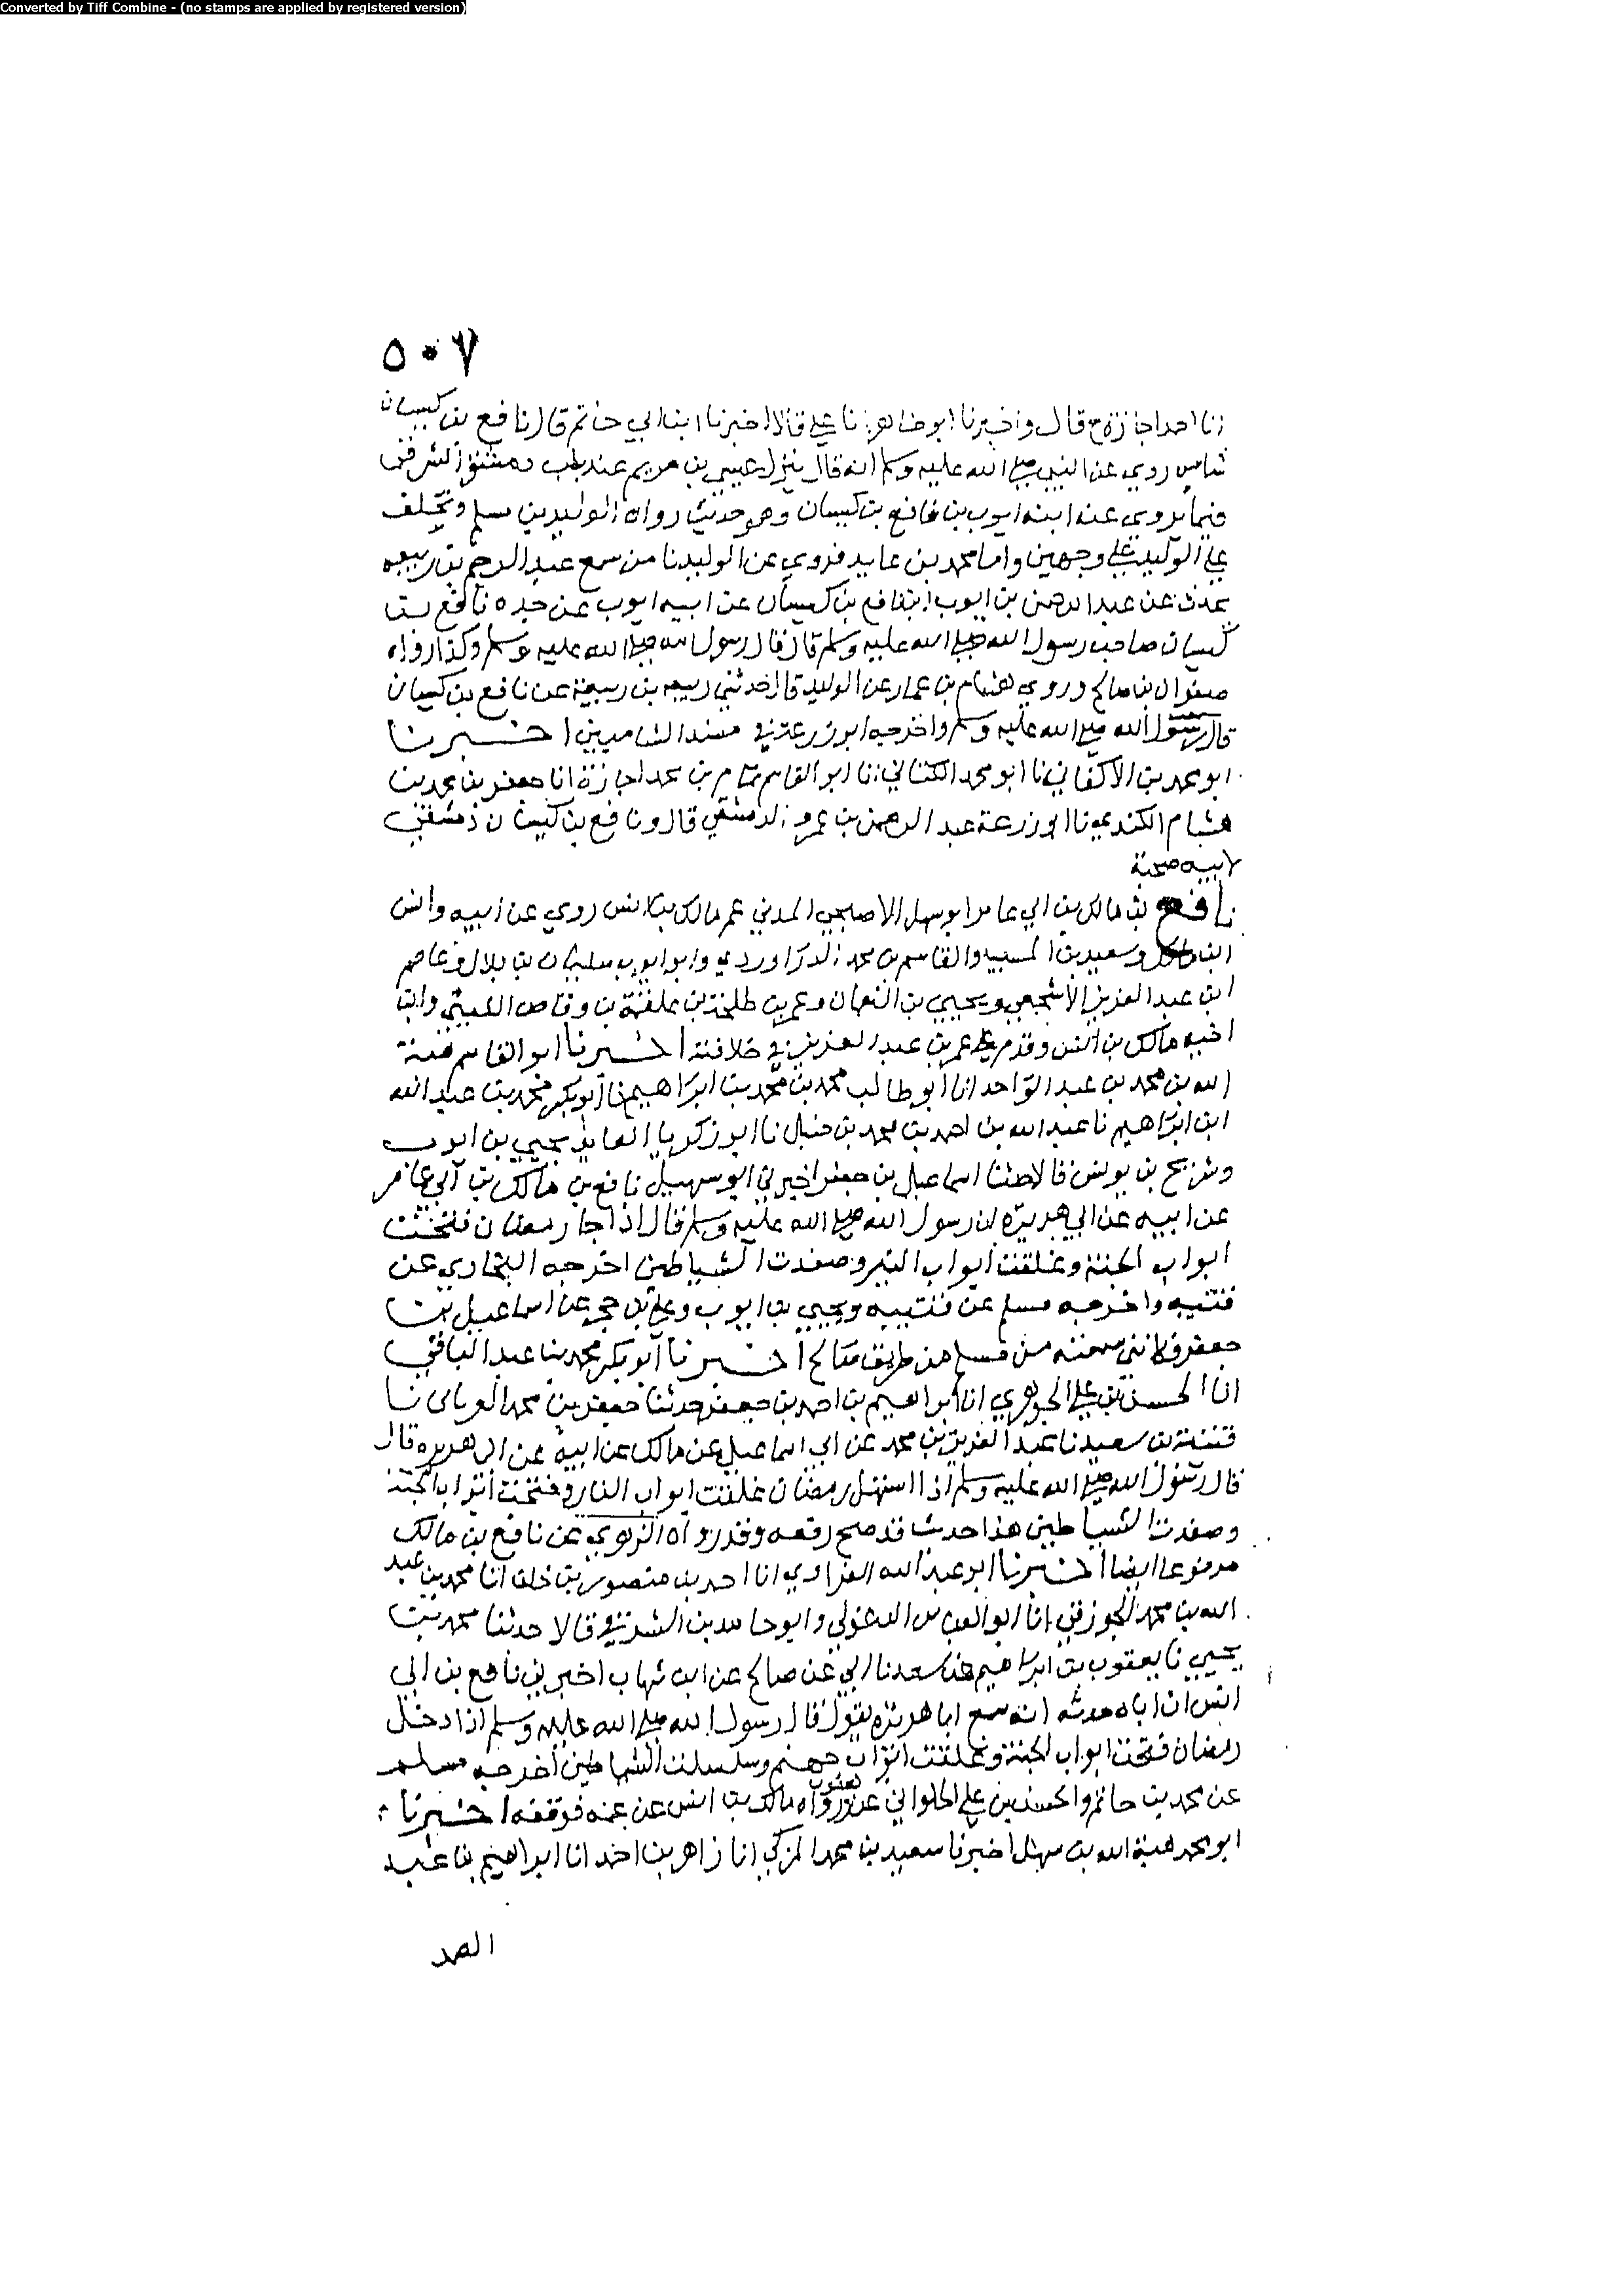 Converted by Tiff Combine - (no stamps are applied by registered version)
٥٠٧
انا احمد اجازة ح قال واخبرنا ابو طاهر انا علي قالا اخبرنا ابن ابي حاتم قال نافع بن كيسان
شامي روي عن النبي صلي الله عليه وسلم انه قال ينزل عيسي بن مريم عند باب دمشق الشرقي
فيما يروي عنه ابنه ايوب بن نافع بن كيسان وهو حديث رواه الوليد بن مسلم ويختلف
علي الوليد علي وجهين واما محمد بن عايد فروي عن الوليد نا من سمع عبد الرحمن بن ربيعه
يحدث عن عبد الرحمن بن ايوب ابن نافع بن كيسان عن ابيه ايوب عن جده نافع بن
كيسان صاحب رسول الله صلي الله عليه وسلم قال قال رسول الله صلي الله عليه وسلم وكذا رواه
صفوان بن صالح وروي هشام بن عمار عن الوليد قال حدثني ربيعه بن ربيعة عن نافع بن كيسان
قال رسول الله صلي الله عليه وسلم واخرجه ابو زرعة في مسند الشاميين اخبرنا
ابو محمد بن الاكفاني نا ابو محمد الكتاني انا ابو القاسم تمام بن محمد اجازة انا جعفر بن محمد بن
هشام الكندي نا ابو زرعة عبد الرحمن بن عمرو الدمشقي قال ونافع بن كيسان دمشقي
لابيه صحبة
نافع بن مالك بن ابي عامر ابو سهل الاصبحي المدني عم مالك بن انس روي عن ابيه وانس
ابن مالك وسعيد بن المسيب والقاسم بن محمد الدراوردي وابو ايوب سليمان بن بلال وعاصم
ابن عبد العزيز الاشجعي ويحيي بن النعمان وعمر بن طلحة بن علقمة بن وقاص الليثي وابن
اخيه مالك بن انس وقدم علي عمر بن عبد العزيز في خلافته اخبرنا ابو القاسم هبة
الله بن محمد بن عبد الواحد انا ابو طالب محمد بن محمد بن ابراهيم نا ابو بكر محمد بن عبد الله
ابن ابراهيم نا عبد الله بن احمد بن محمد بن حنبل نا ابو زكريا العابد يحيي بن ايوب
وشريح بن يونس قالا حدثنا اسماعيل بن جعفر اخبرني ابو سهيل نافع بن مالك بن ابي عامر
عن ابيه عن ابي هريرة ان رسول الله صلي الله عليه وسلم قال اذا جا رمضان فتحت
ابواب الجنة وغلقت ابواب النير وصفدت الشياطين اخرجه البخاري عن
قتيبه واخرجه مسلم عن قتيبه ويحيي بن ايوب وعلي بن حجر عن اسماعيل بن
جعفر فكانني سمعته من مسلم من طريق صالح اخبرنا ابو بكر محمد بن عبد الباقي
انا الحسن بن علي الجوهري انا ابراهيم بن احمد بن جعفر حدثنا جعفر بن محمد الفريابي نا
قتيبة بن سعيد نا عبد العزيز بن محمد عن ابي اسماعيل عن مالك عن ابيه عن ابي هريره قال
قال رسول الله صلي الله عليه وسلم اذا استهل رمضان غلقت ابواب النار وفتحت ابواب الجنة
وصفدت الشياطين هذا حديث قد صح رفعه وقد رواه الزهري عن نافع بن مالك
مرفوعا ايضا اخبرنا ابو عبد الله الفراوي انا احمد بن منصور بن خلف انا محمد بن عبد
الله بن محمد الجوزقي انا ابو العباس الدغولي وابو حامد بن الشرقي قالا حدثنا محمد بن
يحيي نا يعقوب بن ابراهيم بن سعد نا ابي عن صالح عن ابن شهاب اخبرني نافع بن ابي
انس ان اباه حدثه انه سمع ابا هريرة يقول قال رسول الله صلي الله عليه وسلم اذا دخل
رمضان فتحت ابواب الجنة وغلقت ابواب جهنم وسلسلت الشياطين اخرجه مسلم
عن محمد بن حاتم والحسن بن علي الحلواني عن يعقوب ورواه مالك بن انس عن عمه فوقفه اخبرنا
ابو محمد هبة الله بن سهل اخبرنا سعيد بن محمد المزكي انا زاهر بن احمد انا ابراهيم بن عبد
الصمد